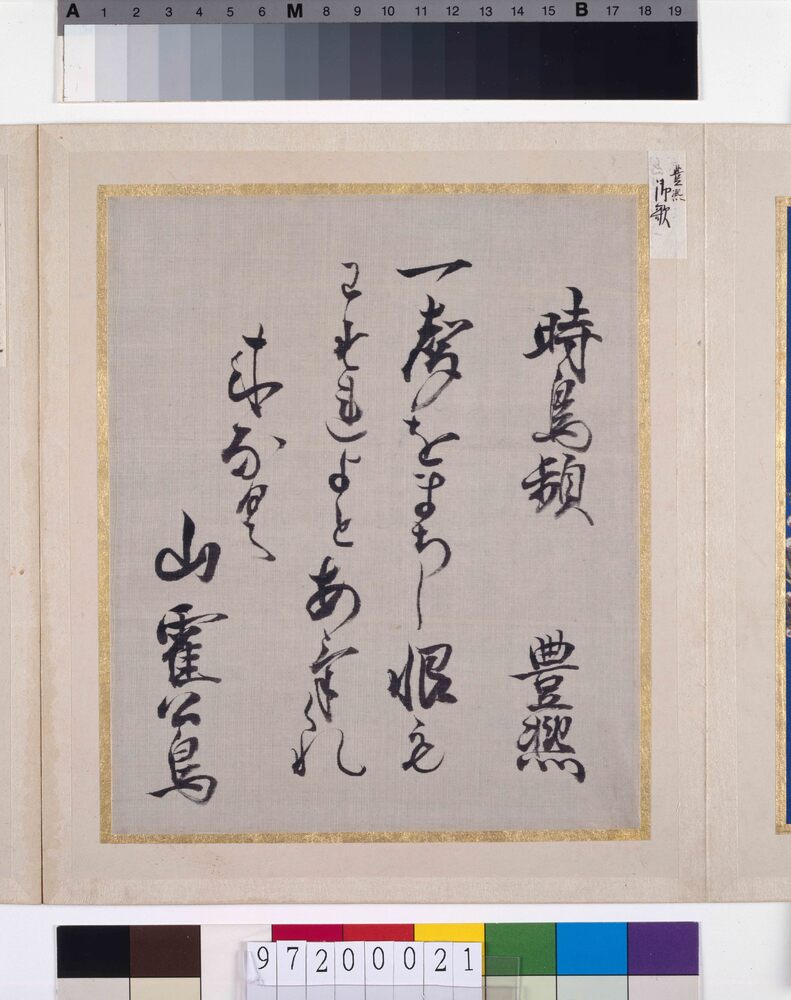 A 1 2 3 4 5 6 M 8 9 10 11 12 13 14 15 B 17 18 19
豊熈
御歌
時鳥頻 豊熈
一聲をまちし恨も
わすれよとあけくれ
来なく
山霍公鳥
97200021